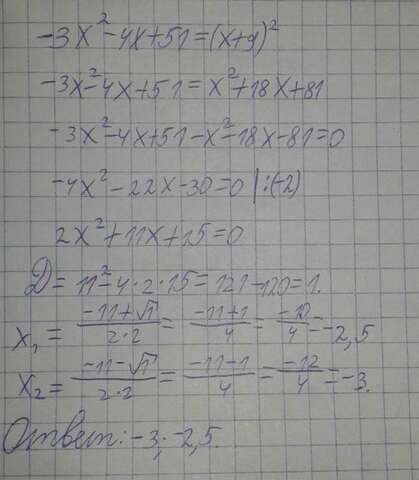 -3x²-4x+51=(x+9)²
-3x²-4x+51=x²+18x+81
-3x²-4x+51-x²-18x-81=0
-4x²-22x-30=0 |:(-2)
2x²+11x+15=0
D=11²-4·2·15=121-120=1.
x₁=(-11+√1)/(2·2)=(-11+1)/4=(-10)/4=-2,5
x₂=(-11-√1)/(2·2)=(-11-1)/4=(-12)/4=-3.
Ответ: -3; -2,5.